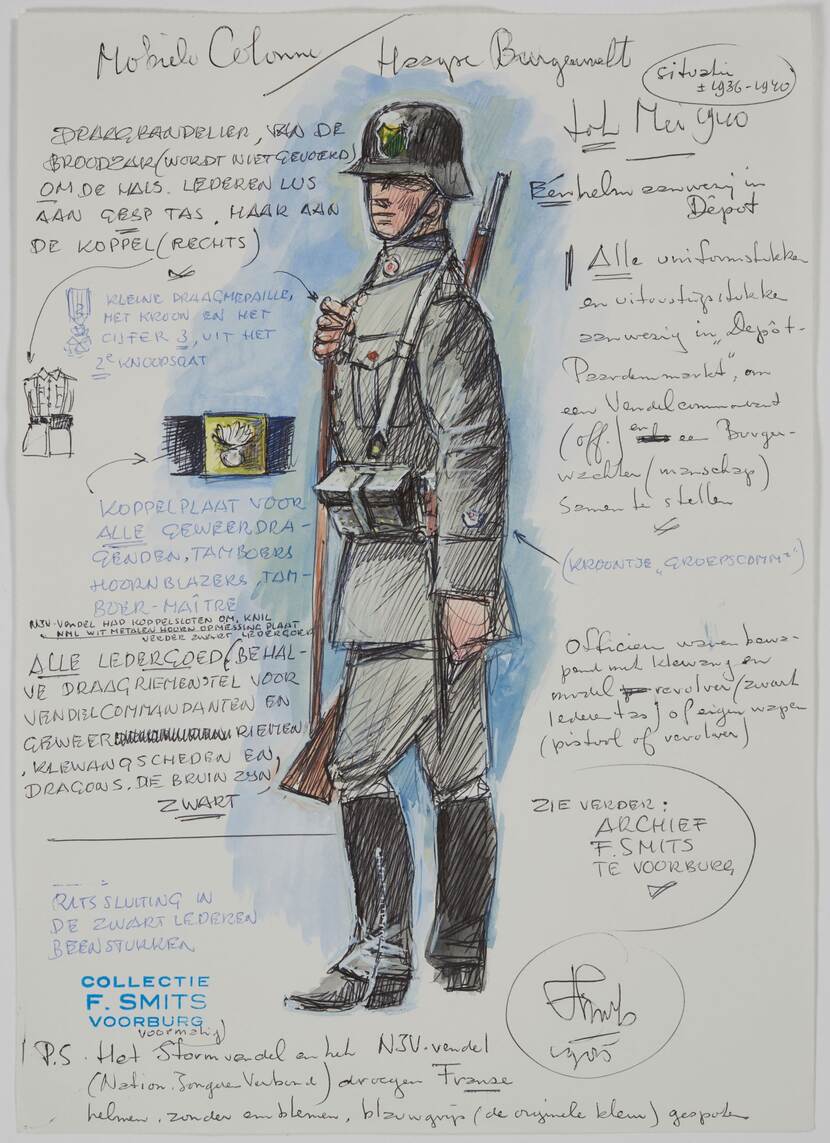 Mobiele Colonne / Haagse Burgerwacht
situatie
± 1936-1940
tot Mei 1940
DRAAGBANDELIER, VAN DE
BROODZAK (WORDT NIET GEVOERD)
OM DE HALS. LEDEREN LUS
AAN GESP TAS, HAAK AAN
DE KOPPEL (RECHTS)
Één helm aanwezig in
Dépot
Alle uniformstukken
en uitrustingsstukken
aanwezig in "Depôt-
Paardenmarkt", om
een Vendelcommandant
(off.) en een Burger-
wachter (manschap)
samen te stellen
KLEINE DRAAGMEDAILLE,
MET KROON EN HET
CIJFER 3, UIT HET
2e KNOOPSGAT
KOPPELPLAAT VOOR
ALLE GEWEERDRA-
GENDEN, TAMBOERS
HOORNBLAZERS, TAM-
BOER-MAÎTRE
(KROONTJE "GROEPSCOMMt")
NJV-VENDEL HAD KOPPELSLOTEN OM, KNIL
NML WIT METALEN HOORN OP MESSING PLAAT
VERDER ZWART LEDERGOED
ALLE LEDERGOED (BEHAL-
VE DRAAGRIEMENSTEL VOOR
VENDELCOMMANDANTEN EN
GEWEER RIEMEN
, KLEWANGSCHEDEN EN
DRAGONS, DE BRUIN ZIJN,
ZWART
Officieren waren bewa-
pend met klewang en
model revolver (zwart
lederen tas) of eigen wapen
(pistool of revolver)
ZIE VERDER:
ARCHIEF
F. SMITS
TE VOORBURG
RITSSLUITING IN
DE ZWART LEDEREN
BEENSTUKKEN
COLLECTIE
F. SMITS
VOORBURG
F Smits
P.S. Het Stormvendel en het (voormalig) NJV-vendel
(Nation. Jongeren Verbond) droegen Franse
helmen, zonder emblemen, blauwgrijs (de originele kleur) gespoten